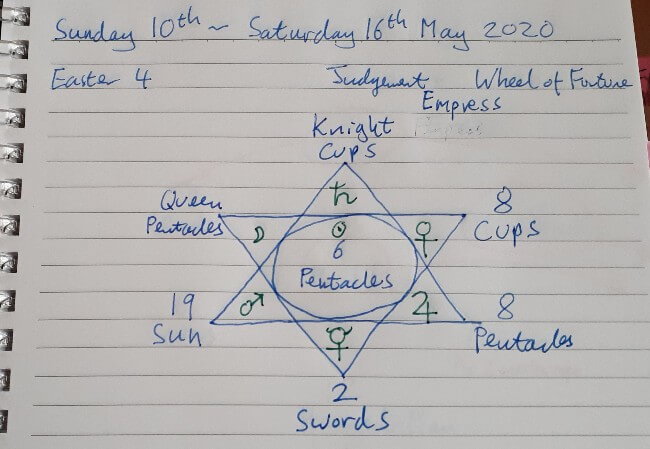 Sunday 10th ~ Saturday 16th May 2020
Easter 4 Judgement Wheel of Fortune
Empress
Knight
Cups
♄
Queen
Pentacles
8
Cups
☽
☉
♀
6
Pentacles
19
Sun
♂
♃
8
Pentacles
☿
2
Swords